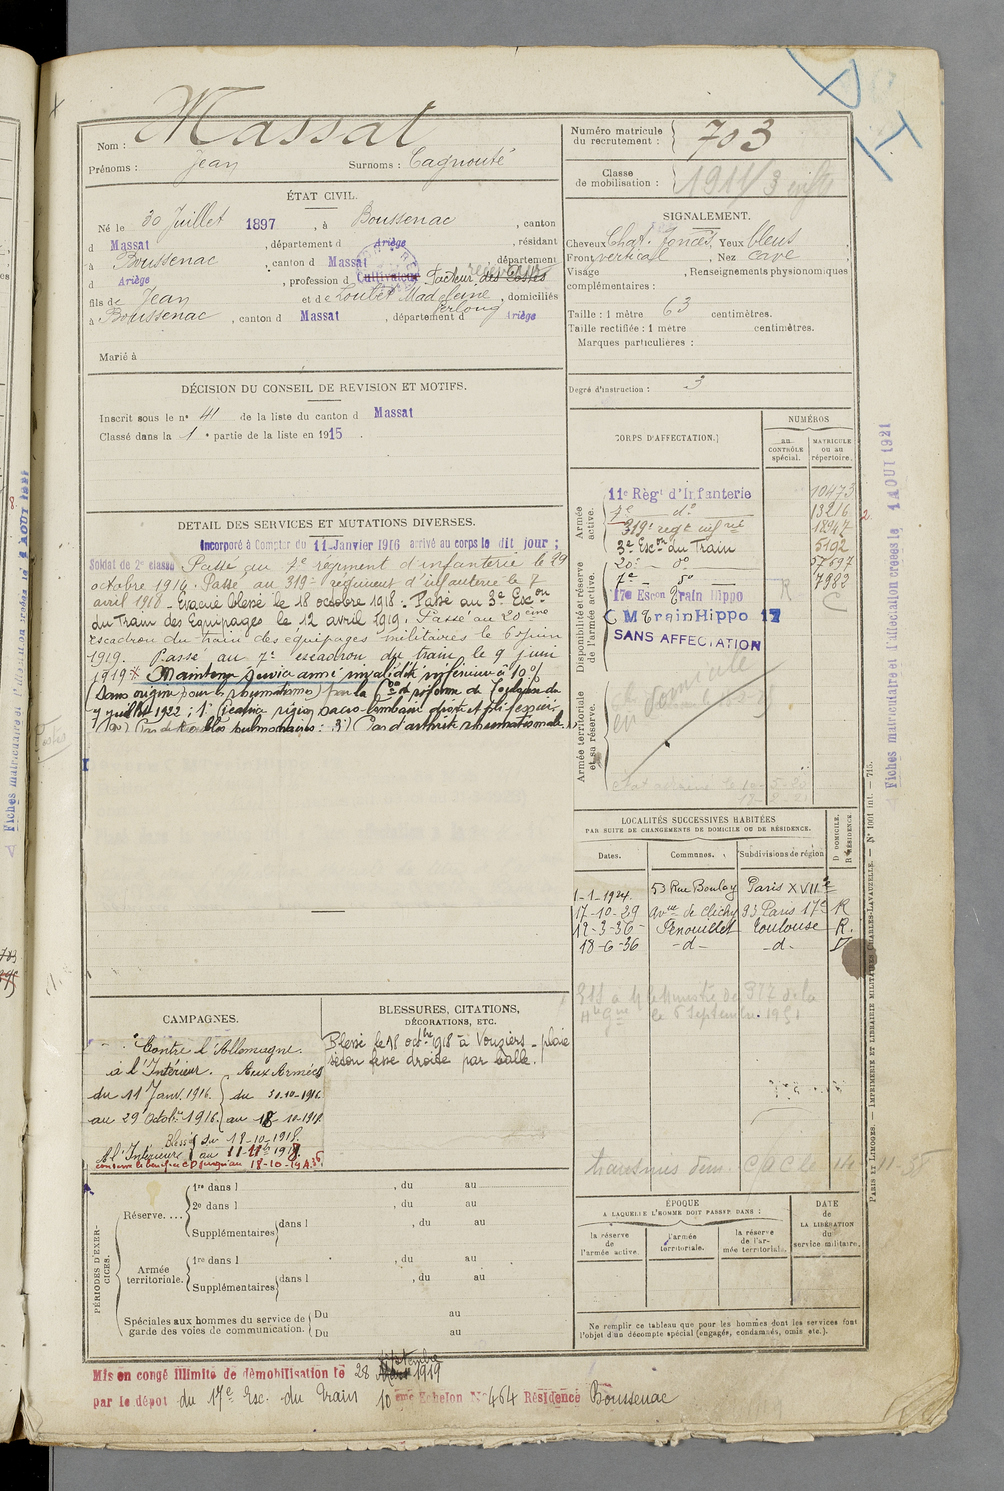 Nom : Massat
Prénoms : Jean Surnoms : Cagnouté
ÉTAT CIVIL.
Né le 30 Juillet 1897, à Boussenac, canton
d Massat, département d Ariège, résidant
à Boussenac, canton d Massat, département
d Ariège, profession d Cultivateur Facteur des Postes
fils de Jean et de Loubet Madeleine, domiciliés
à Boussenac, canton d Massat, département d Ariège
Marié à
DÉCISION DU CONSEIL DE REVISION ET MOTIFS.
Inscrit sous le n° 41 de la liste du canton d Massat
Classé dans la 1e partie de la liste en 1915.
DETAIL DES SERVICES ET MUTATIONS DIVERSES.
Incorporé à Compter du 11 Janvier 1916 arrivé au corps le dit jour ;
Soldat de 2e classe Passé au 7e régiment d'infanterie le 29
octobre 1916. Passé au 319e régiment d'infanterie le 7
avril 1918 - Evacué blessé le 18 octobre 1918. Passé au 3e Escon
du Train des Equipages le 12 avril 1919. Passé au 20ème
escadron du train des equipages militaires le 6 juin
1919. Passé au 7e escadron du train le 9 juin
1919. Maintenu service armé invalidité inférieure à 10%
(sans origine pour le rhumatisme) par la réforme de Toulouse du
7 juillet 1922 : 1°) région sacro-lombaire droite et pli fessier
Pas de troubles pulmonaires : 3°) Pas d'arthrite rhumatismale
CAMPAGNES.
Contre l'Allemagne.
à l'Intérieur. Aux Armées
du 11 Janv. 1916. du 30-10-1916
au 29 Octob. 1916. au 18-10-1918
Blessé du 19-10-1918.
A l'Intérieur au 11-11-1918
BLESSURES, CITATIONS,
DÉCORATIONS, ETC.
Blessé le 18 octbre 1918 à Vouziers - plaie
sèton fesse droite par balle.
PÉRIODES D'EXERCICES.
Réserve....
1re dans l , du au
2e dans l , du au
Supplémentaires dans l , du au
Armée territoriale.
1re dans l , du au
Supplémentaires dans l , du au
Spéciales aux hommes du service de garde des voies de communication.
Du au
Du au
Mis en congé illimité de démobilisation le 28 Septembre 1919
par le dépot du 17e Esc. du Train 10ème Echelon N° 464 Résidence Boussenac
Numéro matricule du recrutement : 703
Classe de mobilisation : 1911/3
SIGNALEMENT.
Cheveux Chat. foncés. Yeux bleus,
Front vertical, Nez cave,
Visage , Renseignements physionomiques
complémentaires :
Taille : 1 mètre 63 centimètres.
Taille rectifiée : 1 mètre centimètres.
Marques particulières :
Degré d'instruction : 3
CORPS D'AFFECTATION.
NUMÉROS
au CONTRÔLE spécial.
MATRICULE ou au répertoire.
Armée active.
11e Règt d'Infanterie 10473
7e do 13216
319e regt infrie 18947
3e Escon du Train 5192
20e do 57697
7e do 7982
Disponibilité et réserve de l'armée active.
17e Escon Train Hippo R
C M Train Hippo 17
SANS AFFECTATION
Armée territoriale et sa réserve.
LOCALITÉS SUCCESSIVES HABITÉES
PAR SUITE DE CHANGEMENTS DE DOMICILE OU DE RÉSIDENCE.
Dates. Communes. Subdivisions de région D DOMICILE. R RÉSIDENCE.
1-1-1924. 53 Rue Boulay Paris XVIIe
17-10-29 Avue de Clichy 93 Paris 17e R
12-3-36 Fenouillet Toulouse R.
18-6-36 -d- -d- D
le 6 Septembre 1951
ÉPOQUE
A LAQUELLE L'HOMME DOIT PASSER DANS :
la réserve de l'armée active.
l'armée territoriale.
la réserve de l'armée territoriale.
DATE de LA LIBÉRATION du service militaire.
Ne remplir ce tableau que pour les hommes dont les services font
l'objet d'un décompte spécial (engagés, condamnés, omis etc.).
Fiches matriculaire et d'affectation créées le 1 AOUT 1921
PARIS ET LIMOGES. — IMPRIMERIE ET LIBRAIRIE MILITAIRES CHARLES-LAVAUZELLE. — N° 1001 int. — 715.